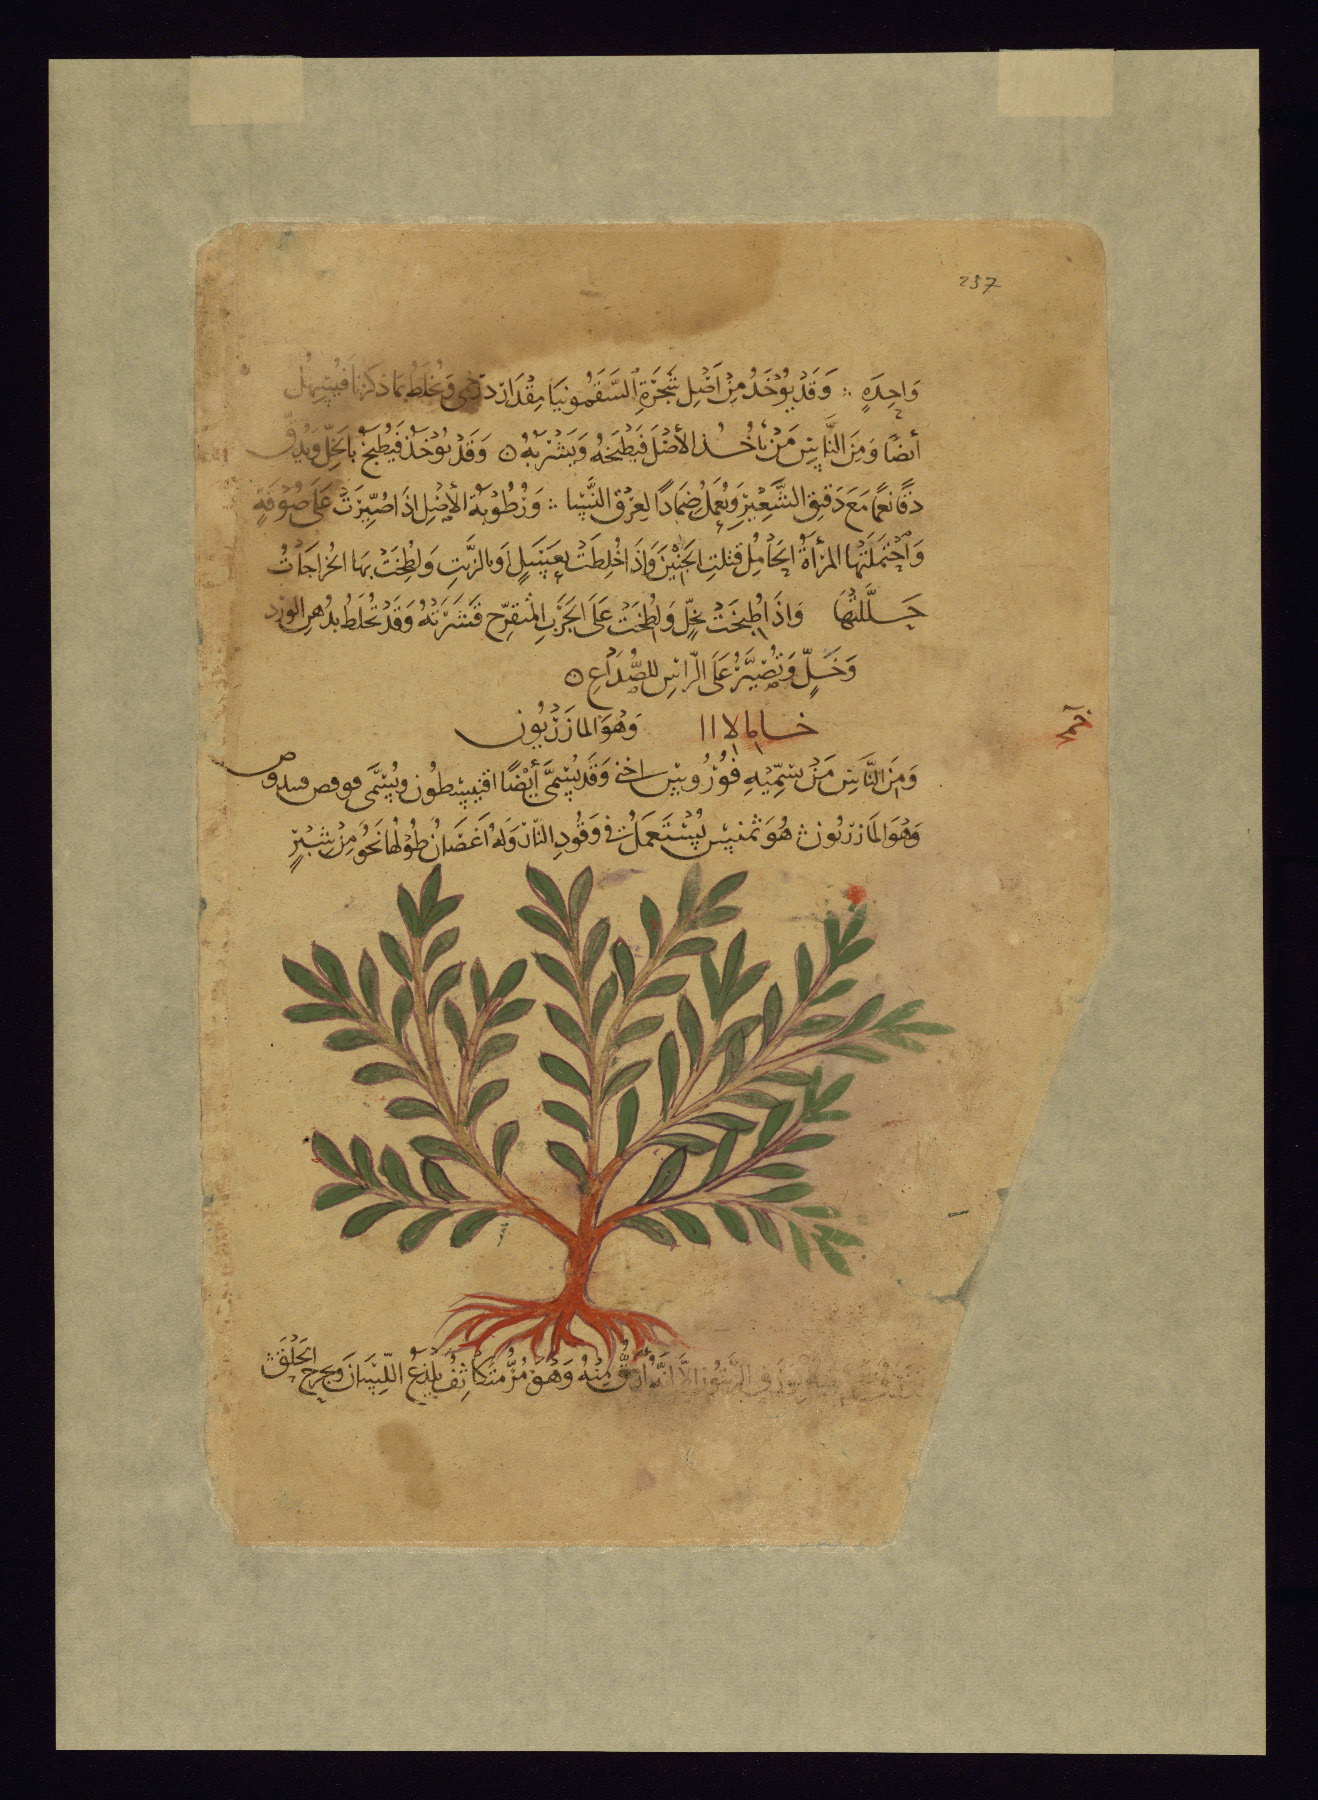 237
وَاحِدَةٍ ؞ وَقَدْ يُوْخَذُ مِنْ اَصْلِ شَجَرَةِ السَّقَمُونِيَا مِقْدَار دَرْخمى وَيُخلَطُ بمَا ذكَرنَا فَيُسْهِلُ
أيضًا وَمِنَ النَّاسِ مَنْ يَأخُذُ الأصْلَ فَيَطْبَخهُ وَيَشْربُهُ ن وَقَدْ يُوْخَذُ فَيُطْبَخُ بِالخَلِّ وَيُدَقّ
دقًا نعمًا مَعَ دَقيقِ الشَّعِيْرِ وَيُعمَلُ ضمَادًا لِعِرْقِ النَّسَا ؞ وَرُطُوبَةُ الأصْلِ اِذَا صُيِّرَتْ عَلَى صُوْفَةٍ
وَاحْتَمَلَتْهَا المرْأةُ الحَامِلُ قتلتِ الجَنِيْنَ وَاِذَا خُلِطَتْ بِعَسَلٍ اَوبالزَّيتِ وَلطِخَتْ بهَا الخرَاجَاتُ
حَلَّلتْهَا وَاِذَا طُبِخَتْ بخلٍّ وَلُطِخَتْ عَلَى الجَرَبِ المُتقرِّح قَشَرَتهُ وَقَدْ تُخلَطُ بدُهنِ الورْد
وَخَلٍّ وَتُصَيَّرُ عَلَى الرَّاسِ للصُّدَاعِ ن
خمالاا وَهُوَ المَازَرْيُون
وَمِنَ النَّاسِ مَنْ يسَمِّيْهِ فُوْرُوس اخنى وَقَدْ يُسْمَّى أيْضًا اقنيسطون وَيُسَّمى
وَهُوَ المَازريُون هُوَ ثمنيس يُسْتَعمَلُ فى وَقُودِ النَّار وَلهُ اَغصَانٌ طُوْلهَا نَحْوٌ مِنْ شِبْرٍ
الزَّيْتُوْنِ اِلَّا اَنَّهُ أدَقُّ مِنْهُ وَهُوَ مُرٌّ مُتَكَاثِفٌ يَلْذَعُ اللِّسَانَ وَيجرح الحَلْقَ